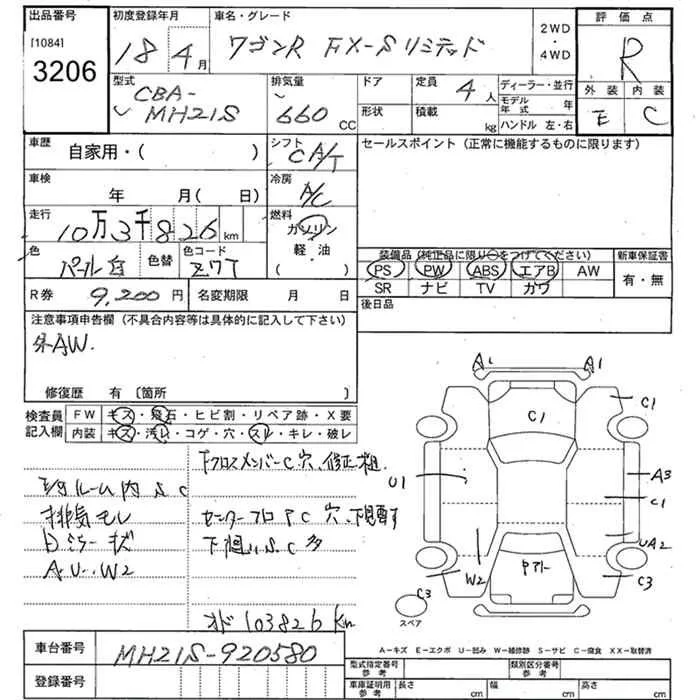 出品番号 初度登録年月 車名・グレード 2WD・4WD 評価点
[1084]
3206
18年4月 ワゴンR FX-Sリミテッド R
型式 排気量 ドア 定員 4人 ディーラー・並行 外装 内装
CBA-
MH21S 660 CC 形状 積載 kg モデル年式 年 E C
ハンドル 左・右
車歴 シフト セールスポイント (正常に機能するものに限ります)
自家用・( ) CA/T
車検 冷房
年 月( 日) A/C
走行 燃料
10万3千826km ガソリン
色 色替 色コード 軽・油
パール白 Z7T ( )
装備品 (純正品に限り○をつけてください) 新車保証書
PS PW ABS エアB AW 有・無
SR ナビ TV カワ
R券 9,200円 名変期限 月 日 後日品
注意事項申告欄 (不具合内容等は具体的に記入して下さい)
AW.
修復歴 有 〔箇所 〕
検査員 FW キズ・飛石・ヒビ割・リペア跡・X要
記入欄 内装 キズ・汚レ・コゲ・穴・スレ・キレ・破レ
FクロスメンバーC穴、修正
ルーム内 S C
排気モレ センターフロアC穴、
Dミラーキズ 下廻りS、C多
A、U、W2
オド103826km
A1 A1
C1 C1
U1 A3
C1
UA2
W2
C3 C3
スペア
A-キズ E-エクボ U-凹み W-補修跡 S-サビ C-腐食 XX-取替済
車台番号 MH21S-920580
登録番号
型式指定番号 参考 類別区分番号 参考
車庫証明用 参考 長さ cm 幅 cm 高さ cm